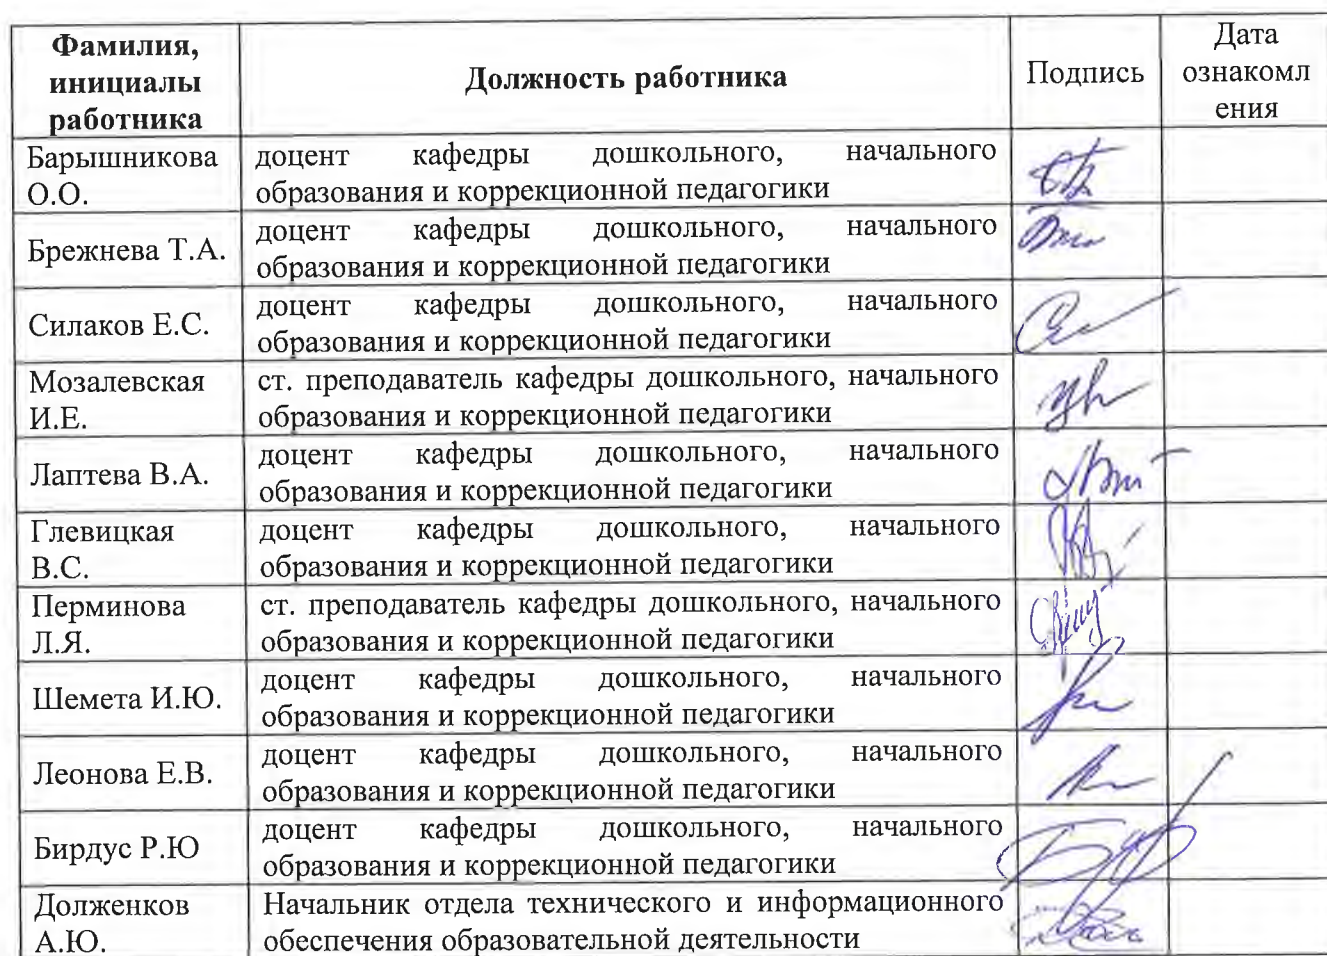 Фамилия,
инициалы
работника
Должность работника
Подпись
Дата
ознакомл
ения
Барышникова
О.О.
доцент кафедры дошкольного, начального
образования и коррекционной педагогики
Брежнева Т.А.
доцент кафедры дошкольного, начального
образования и коррекционной педагогики
Силаков Е.С.
доцент кафедры дошкольного, начального
образования и коррекционной педагогики
Мозалевская
И.Е.
ст. преподаватель кафедры дошкольного, начального
образования и коррекционной педагогики
Лаптева В.А.
доцент кафедры дошкольного, начального
образования и коррекционной педагогики
Глевицкая
В.С.
доцент кафедры дошкольного, начального
образования и коррекционной педагогики
Перминова
Л.Я.
ст. преподаватель кафедры дошкольного, начального
образования и коррекционной педагогики
Шемета И.Ю.
доцент кафедры дошкольного, начального
образования и коррекционной педагогики
Леонова Е.В.
доцент кафедры дошкольного, начального
образования и коррекционной педагогики
Бирдус Р.Ю
доцент кафедры дошкольного, начального
образования и коррекционной педагогики
Долженков
А.Ю.
Начальник отдела технического и информационного
обеспечения образовательной деятельности